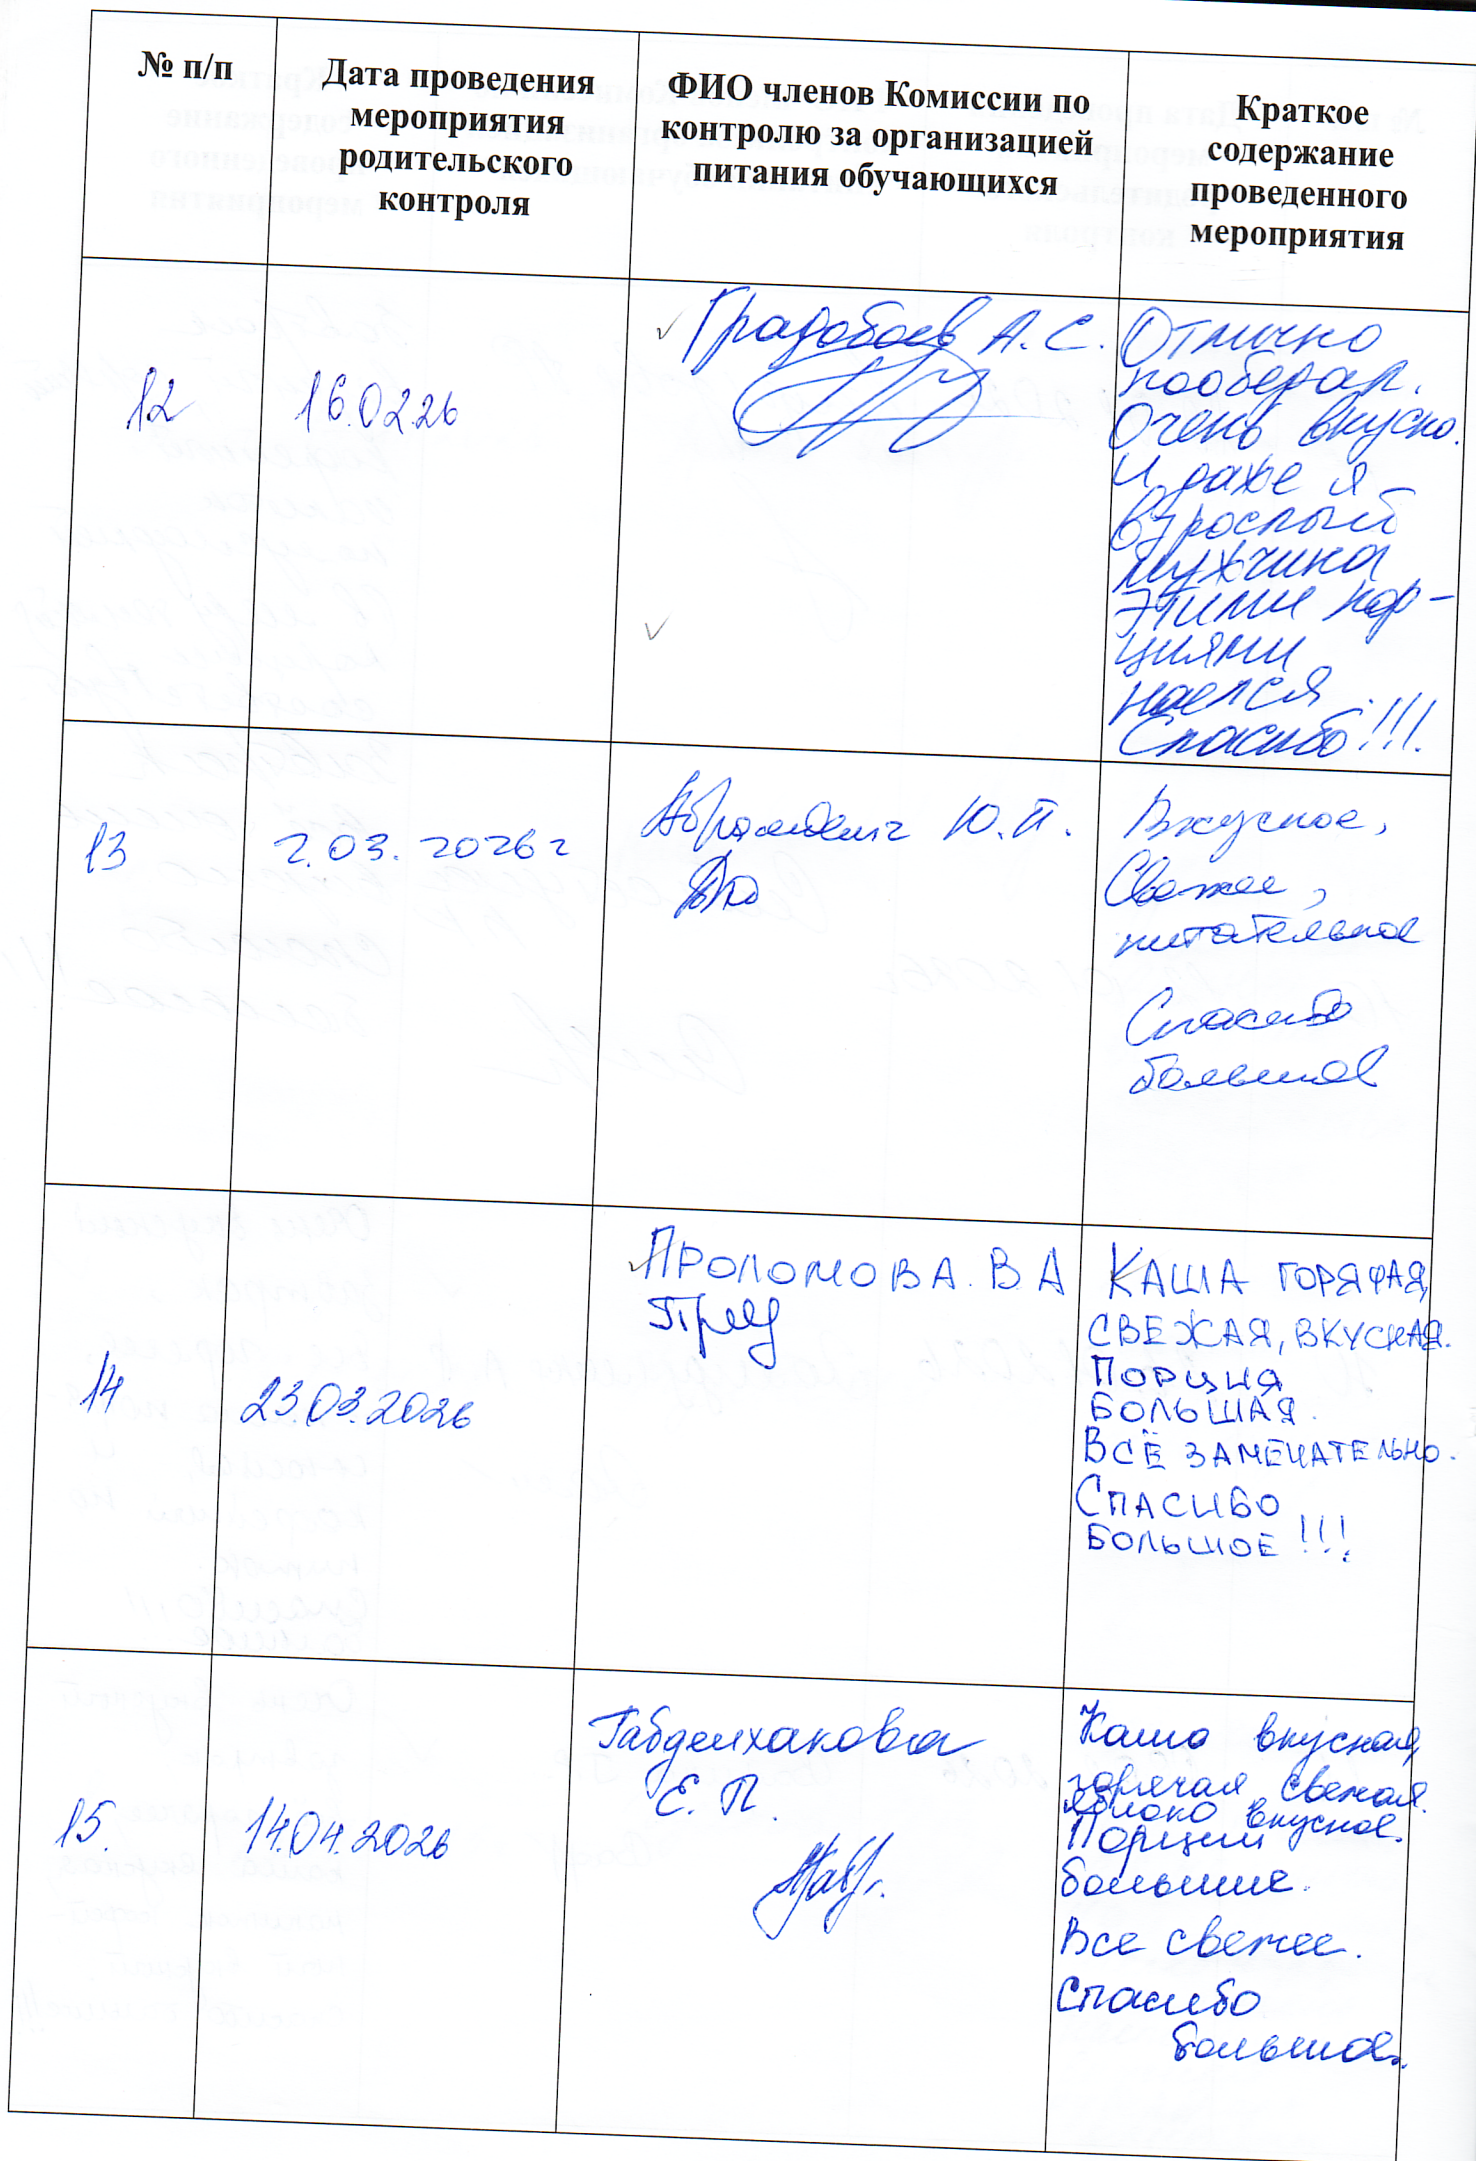 № п/п
Дата проведения
мероприятия
родительского
контроля
ФИО членов Комиссии по
контролю за организацией
питания обучающихся
Краткое
содержание
проведенного
мероприятия
12
16.02.26
Градобоев А. С.
Отлично
пообедал.
Очень вкусно.
И даже я
взрослый
мужчина
этими пор-
циями
наелся.
Спасибо!!!
13
2.03.2026г
Ю.П.
Вкусное,
Свежее,
питательное
Спасибо
большое
14
23.03.2026
ПРОЛОМОВА. В А
КАША ГОРЯЧАЯ,
СВЕЖАЯ, ВКУСНАЯ.
ПОРЦИЯ
БОЛЬШАЯ.
ВСЁ ЗАМЕЧАТЕЛЬНО.
СПАСИБО
БОЛЬШОЕ!!!
15.
14.04.2026
Габделхакова
Е. П.
Каша вкусная,
горячая, свежая.
яблоко вкусное.
Порции
большие.
Все свежее.
Спасибо
большое.